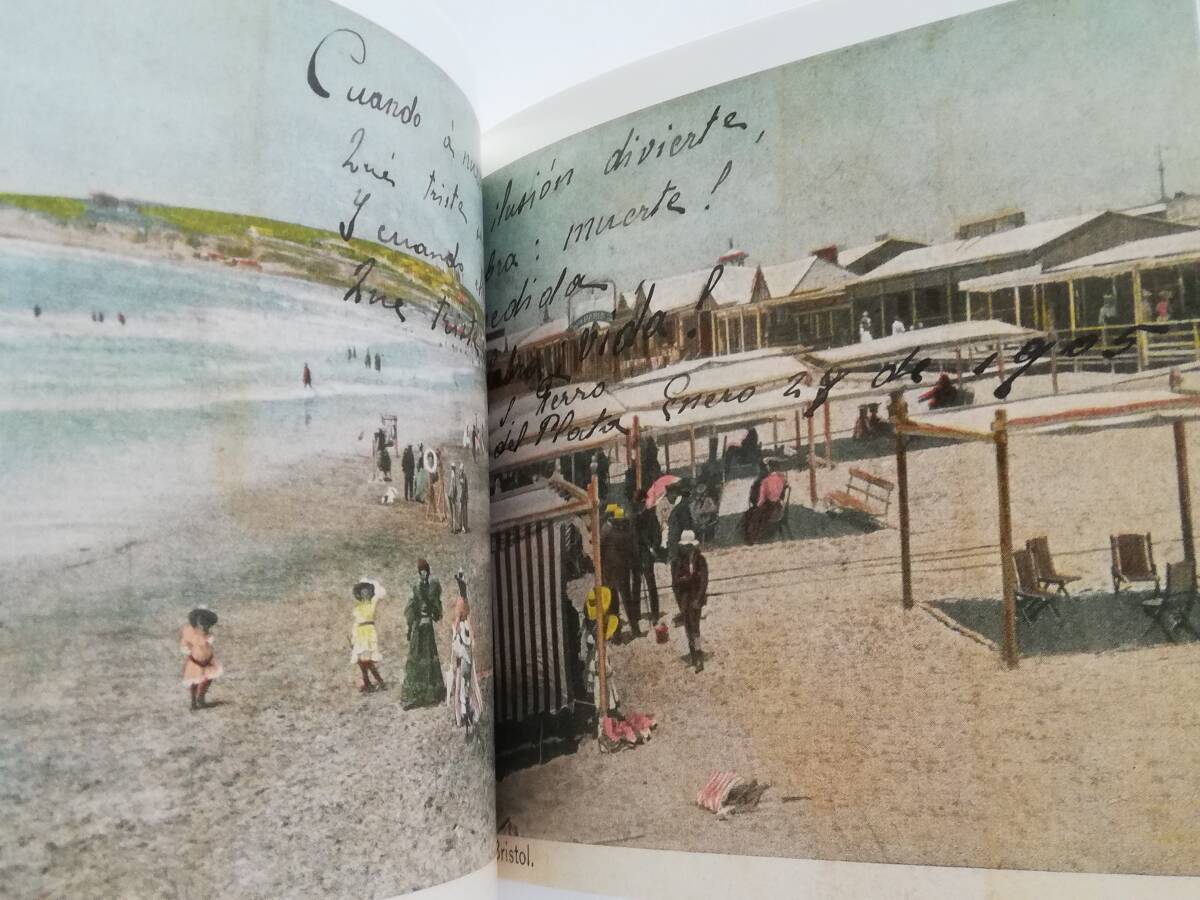 Cuando á nu ilusión divierte,
Qué triste bra: muerte!
Y cuando edida
Que trist bra: vida!
J Ferro
del Plata Enero 28 de 1905
Bristol.